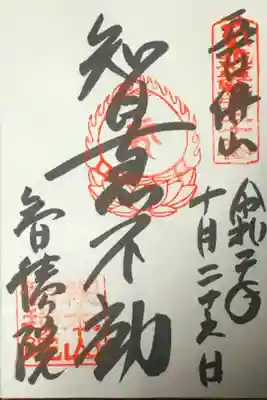 五百佛山
智恵不動
令和二年
十月二十五日
智積院